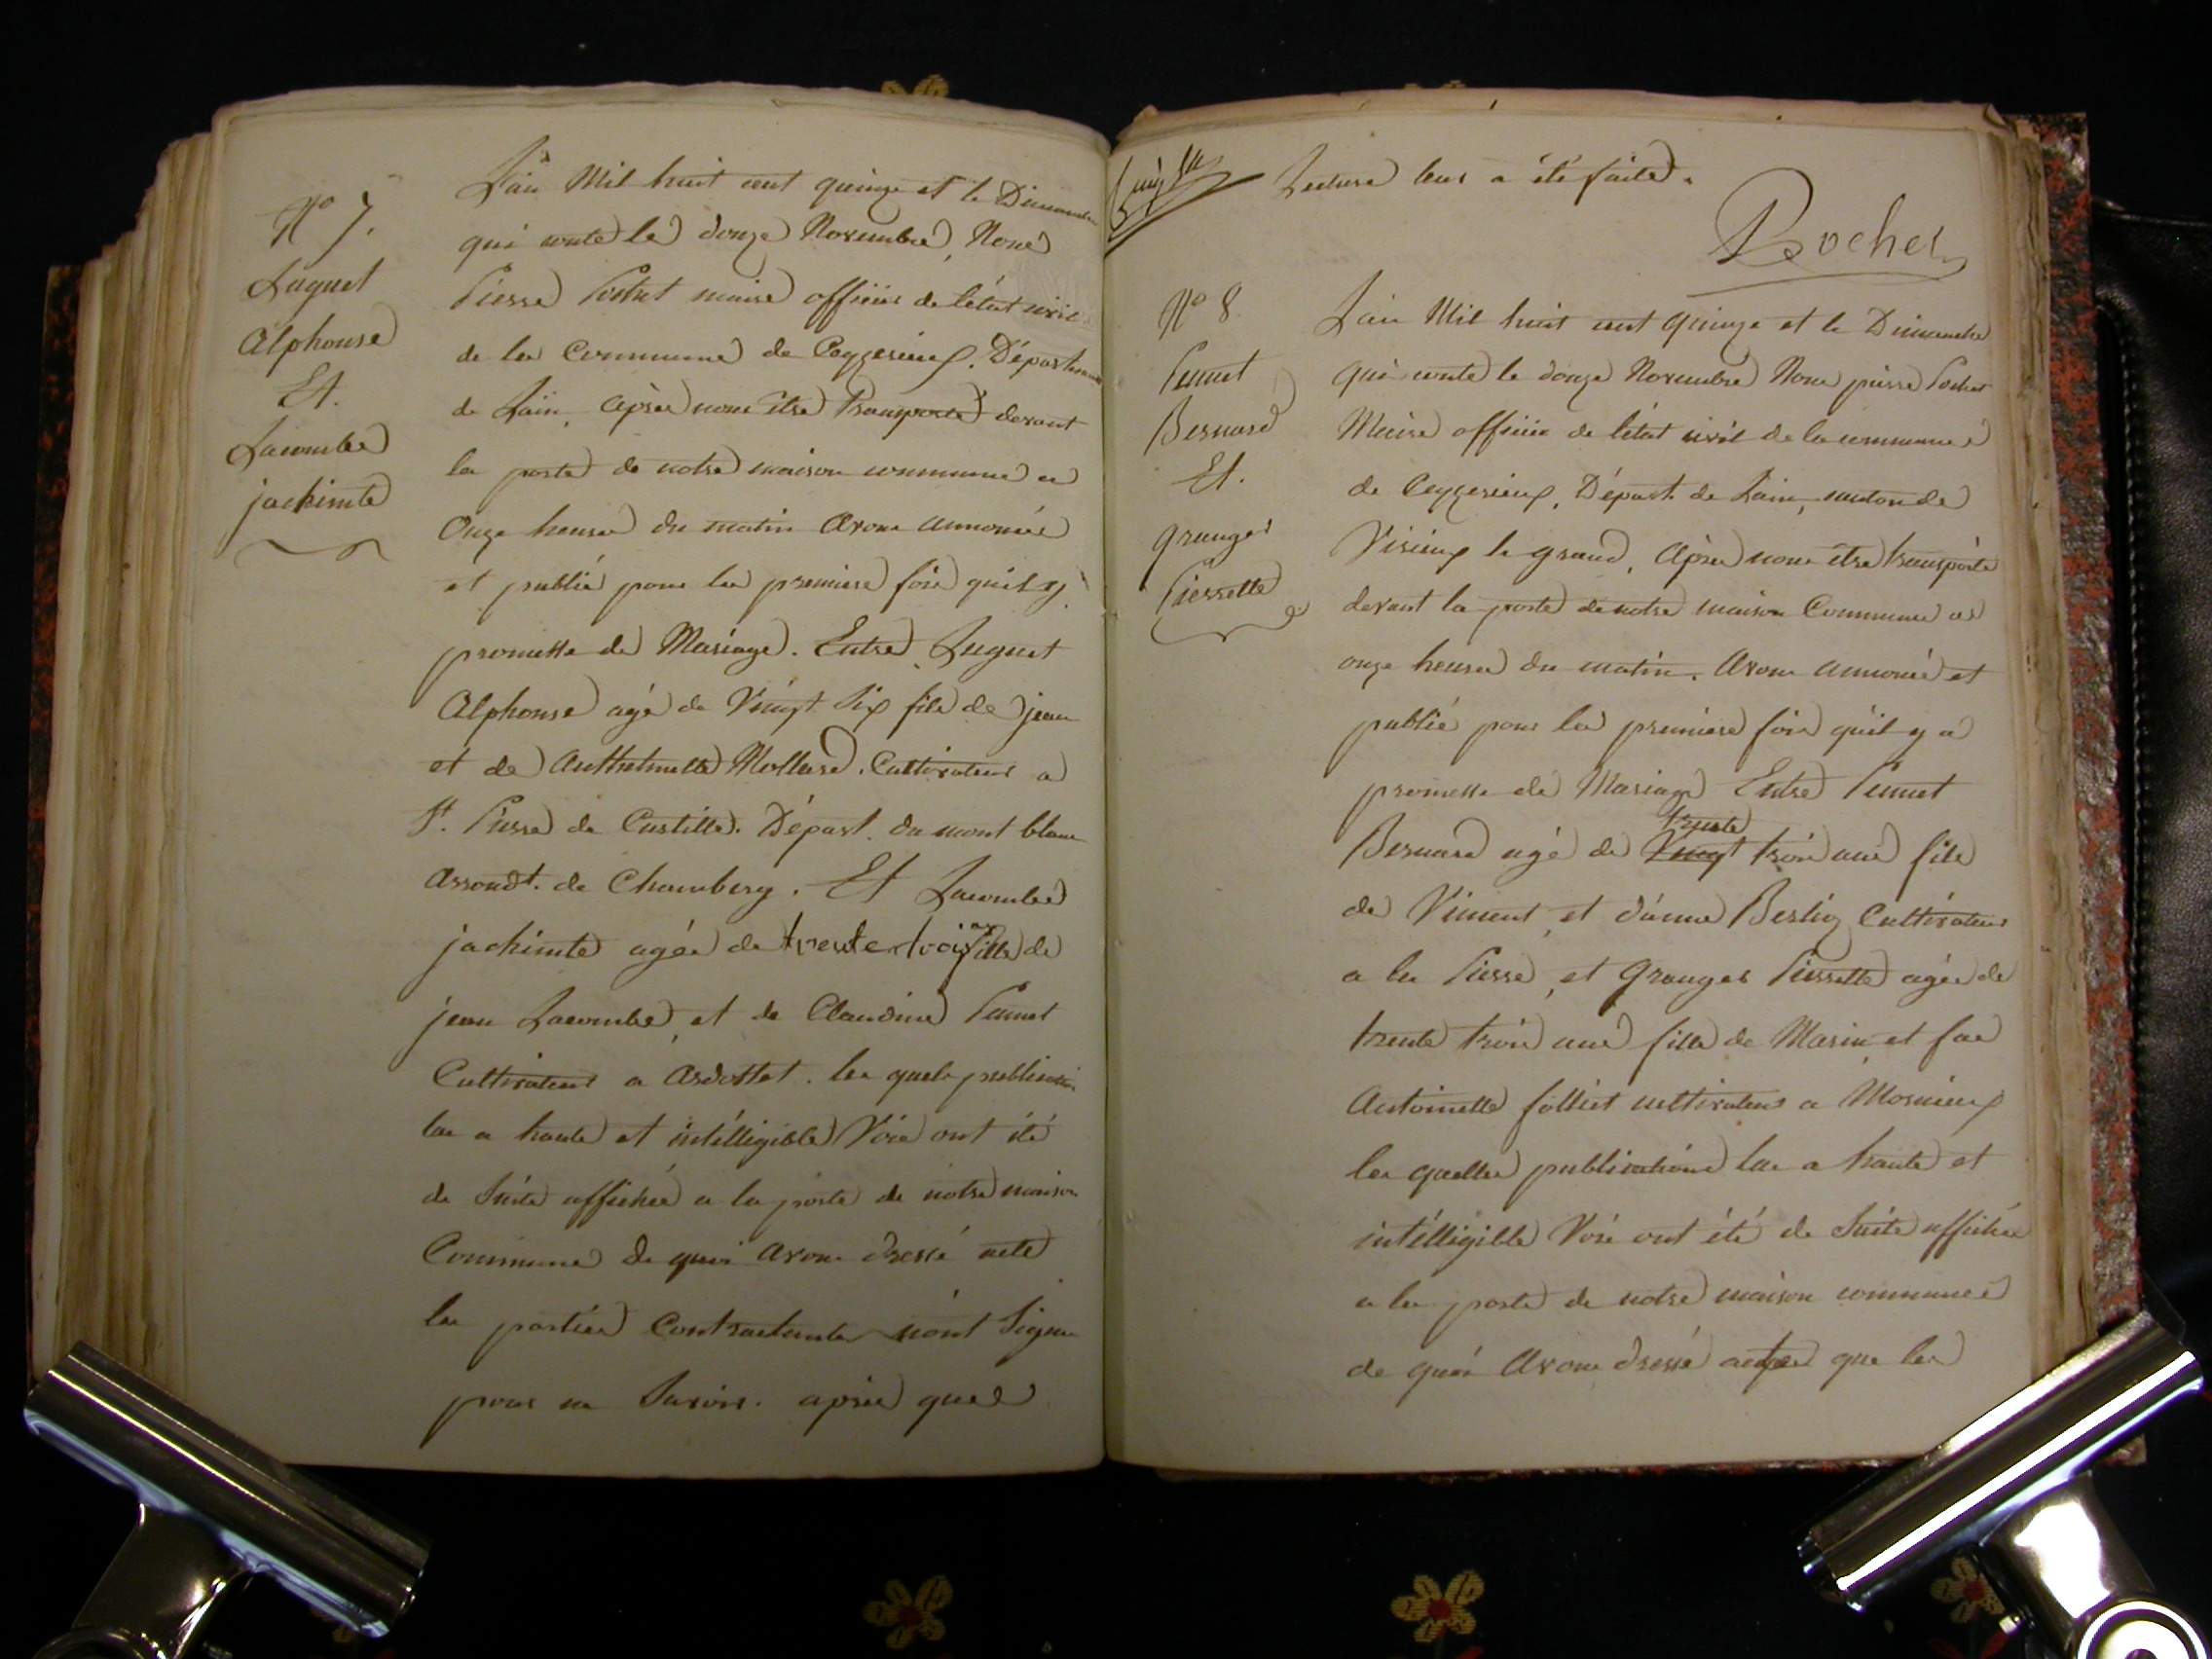 N° 7.
Luquet
Alphonse
Et.
Lacombe
jachinte
L'an Mil huit cent quinze et le Dimanche
qui conte le douze Novembre, Nous
Pierre maire officier de l'état civil
de la Commune de Ceyzerieux. Département
de L'ain, Après nous être Transporté devant
la porte de notre maison commune a
Onze heures du matin Avons annoncé
et publié pour la premiere fois quil y
promesse de Mariage. Entre Luguet
Alphonse agé de Vingt Six fils de jean
et de Anthelmette Mollard. Cultivateur a
St. Pierre de Curtille. Départ. du mont blanc
Arrondt. de Chambery. Et Lacombe
jachinte agée de trente trois ans fille de
jean Lacombe, et de Claudine
Cultivateur a Ardosset. les quels publication
lue a haute et intélligible Voie ont été
de Suite affichée a la porte de notre maison
Commune de quoi avons dressé acte
les parties Contractantes n'ont Signer
pour ne Savoir. après quel
Lecture leur a été faite.
Pochet
N° 8
Bernard
Et.
granger
Pierrette
L'ain Mil huit cent quinze et le Dimanche
qui conte le douze Novembre Nous pierre Pochet
Maire officier de l'état civil de la commune
de Ceyzerieux, Départ. de Lain, canton de
Virieux le grand, Après nous être transporté
devant la porte de notre maison Commune a
onze heures du matin. Avons annoncé et
publié pour la premiere fois qu'il y a
promesse de Mariage Entre
trente
Bernard agé de Vingt trois ans fils
de Vincent, et d'anne Cultivateur
a la Pierre, et Granger Pierrette agée de
trente trois ans fille de Marin et fue
Antoinette folliet cultivateur a Mornieux
les quelles publications lue a haute et
intélligible Voie ont été de Suite affichée
a la porte de notre maison commune
de quoi Avons dressé acte que les